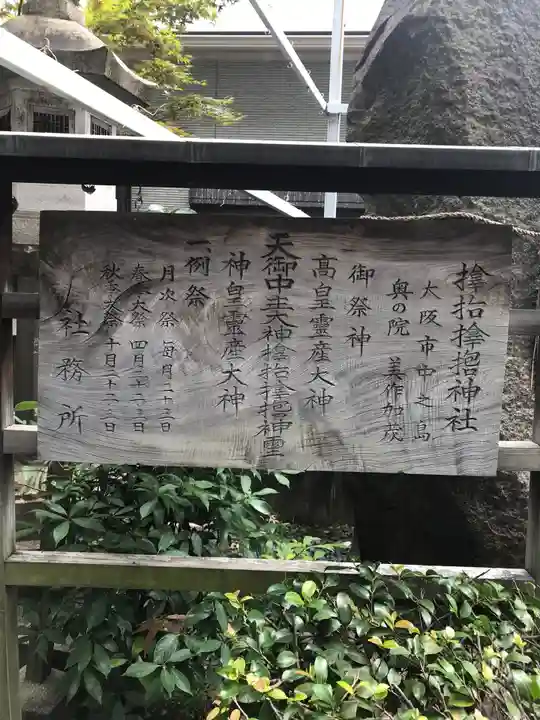 㨩抬㨩㨐神社
大阪市中之島
奥の院 美作加茂
御祭神
高皇霊産大神
天御中主大神㨩抬㨩㨐神霊
神皇霊産大神
一、例祭
月次祭 毎月二十三日
春季大祭 四月二十二・二十三日
秋季大祭 十月二十二・二十三日
社務所